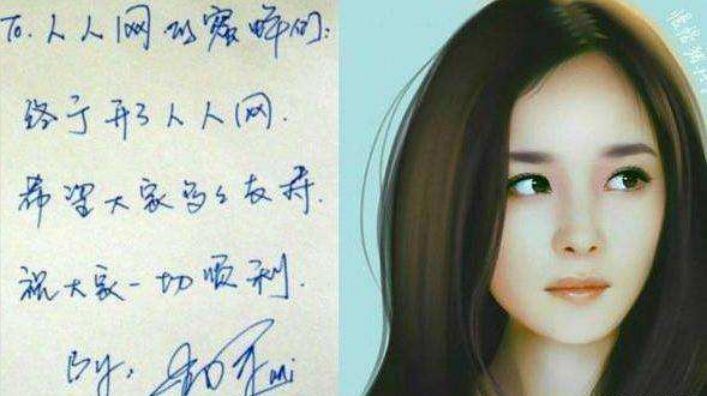 To. 人人网的蜜蜂们:
终于开了人人网.
希望大家多多支持.
祝大家一切顺利.
By: